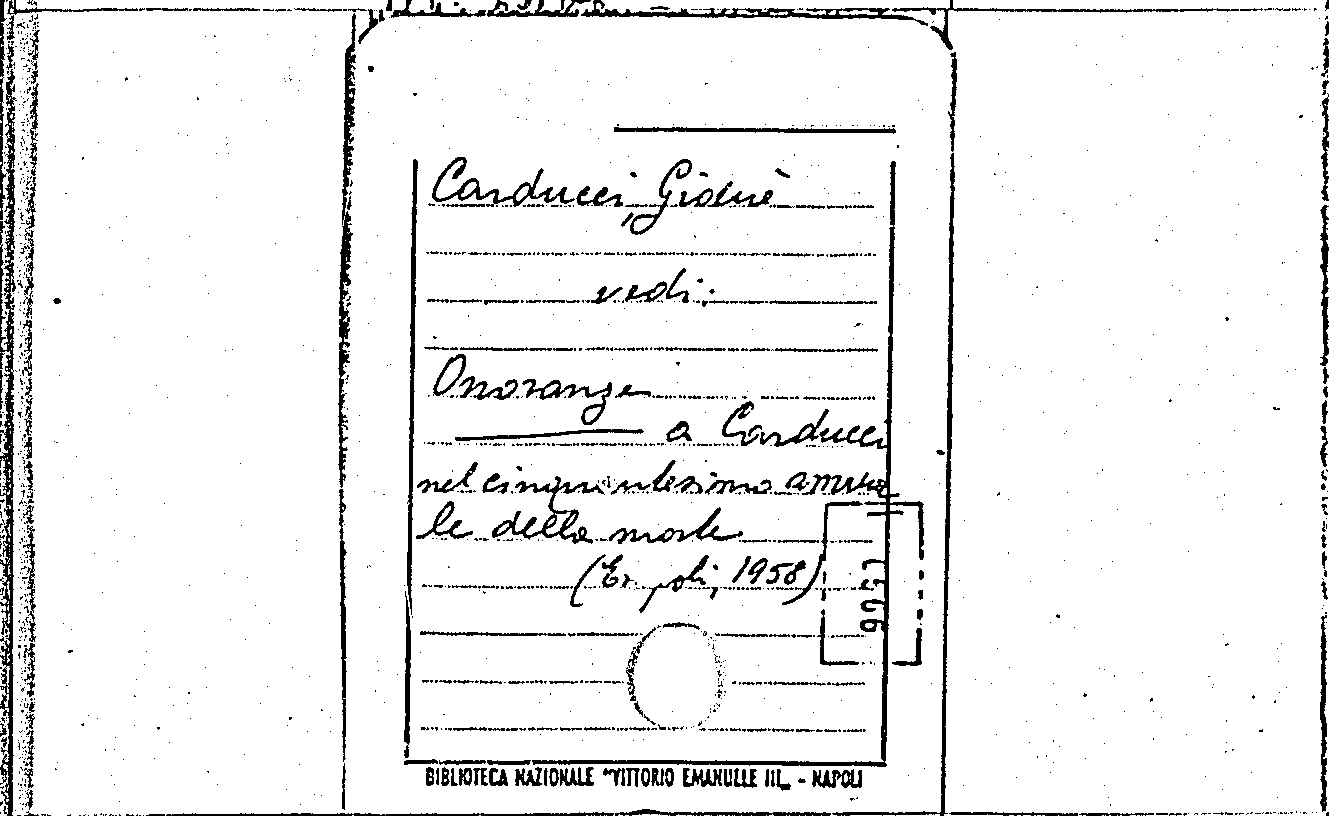 Carducci, Giosuè
vedi:
Onoranze
a Carducci
nel cinquantesimo annua
le della morte
(Empoli, 1958)
BIBLIOTECA NAZIONALE "VITTORIO EMANUELE III„ - NAPOLI